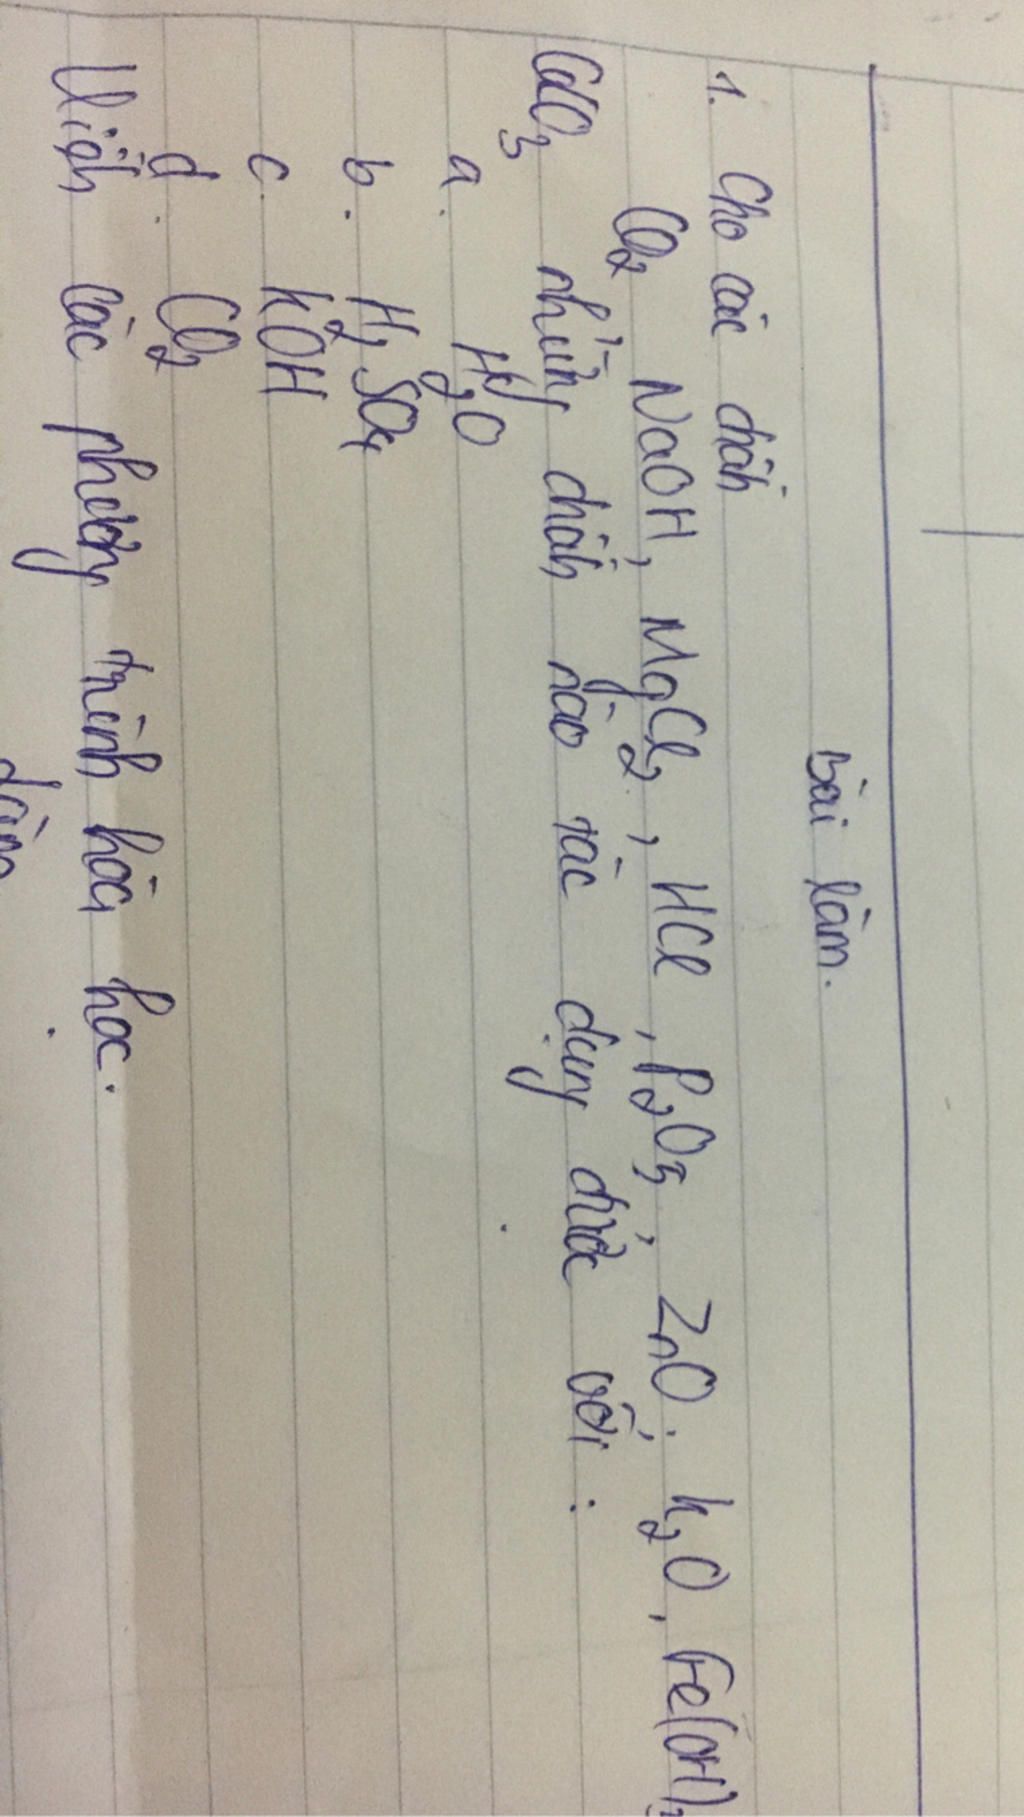 Bài làm.
1. Cho các chất
CO2 NaOH, MgCl2, HCl, P2O5, ZnO, K2O, Fe(OH)
CaCO3 những chất nào tác dụng được với:
a. H2O
b. H2SO4
c. KOH
d. CO2
Viết các phương trình hóa học.